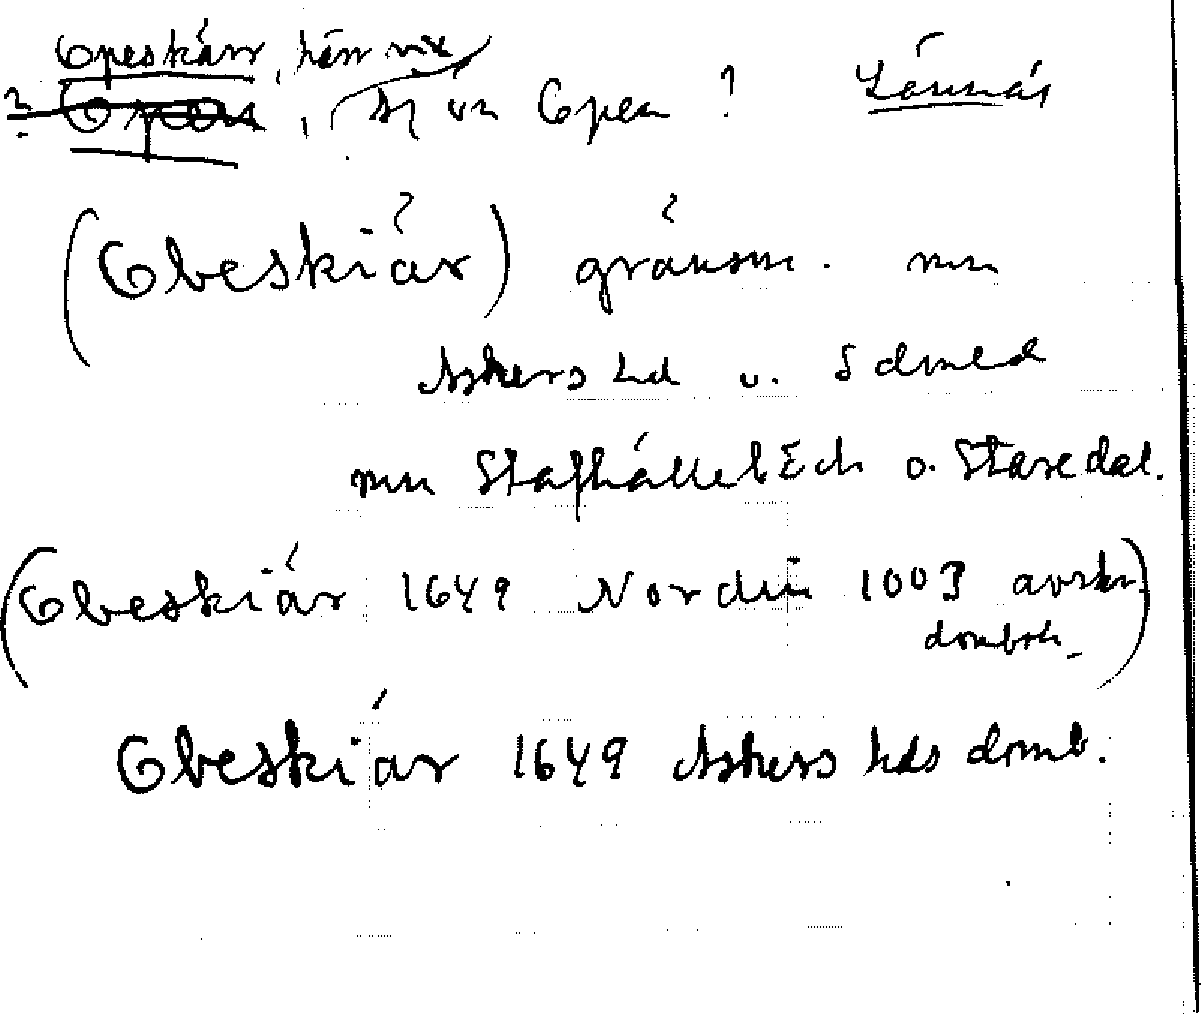 Opeskärr, kärr
? Open, sj sn Open ? Lännäs
(Obeskiär) gränsm. mn
Askers hd o. Sdmld
mn Stafhällebäck o. Staredal.
(Obeskiär 1649 Nordin 1003 avskr. dombok)
Obeskiär 1649 Askers hds domb.